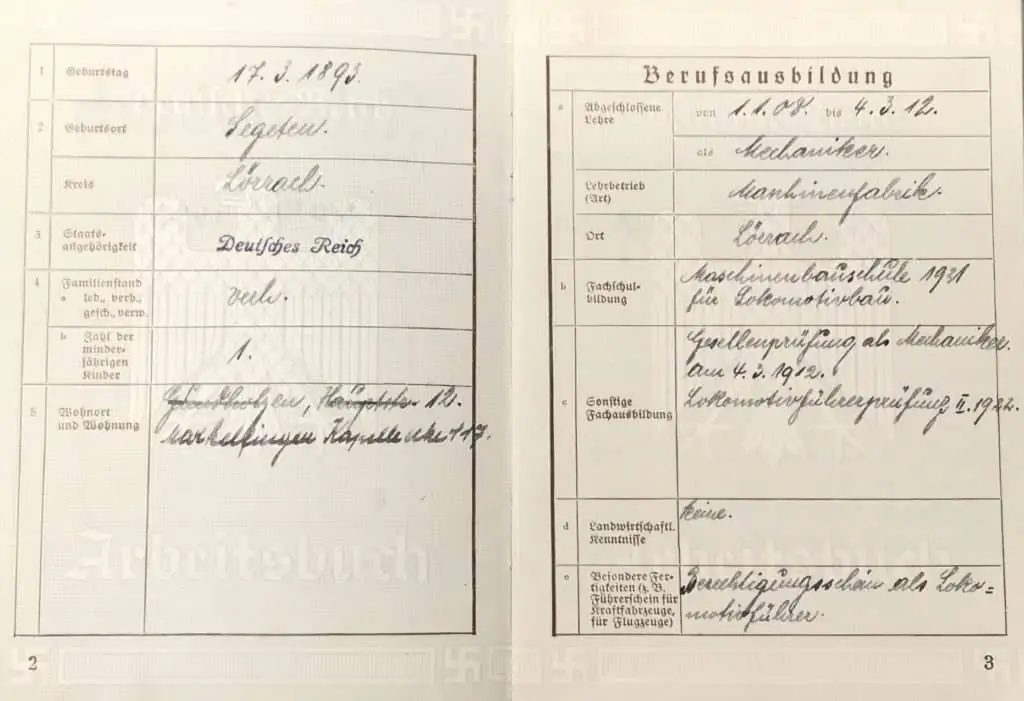 1 Geburtstag 17. 3. 1893.
2 Geburtsort Segeten.
Kreis Lörrach.
3 Staats-
angehörigkeit Deutsches Reich
4 Familienstand
a led., verh.,
gesch., verw. verh.
b Zahl der
minder-
jährigen
Kinder 1.
5 Wohnort
und Wohnung
Hauptstr. 12.
Markelfingen
Arbeitsbuch
2
Berufsausbildung
a Abgeschlossene
Lehre von 1.1.08. bis 4.3.12.
als Mechaniker.
Lehrbetrieb
(Art) Maschinenfabrik.
Ort Lörrach.
b Fachschul-
bildung
Maschinenbauschule 1921
für Lokomotivbau.
c Sonstige
Fachausbildung
Gesellenprüfung als Mechaniker.
am 4.3.1912.
Lokomotivführerprüfung II. 1922.
d Landwirtschaftl.
Kenntnisse keine.
e Besondere Fer-
tigkeiten (z. B.
Führerschein für
Kraftfahrzeuge,
für Flugzeuge)
Berechtigungsschein als Loko=
motivführer.
3